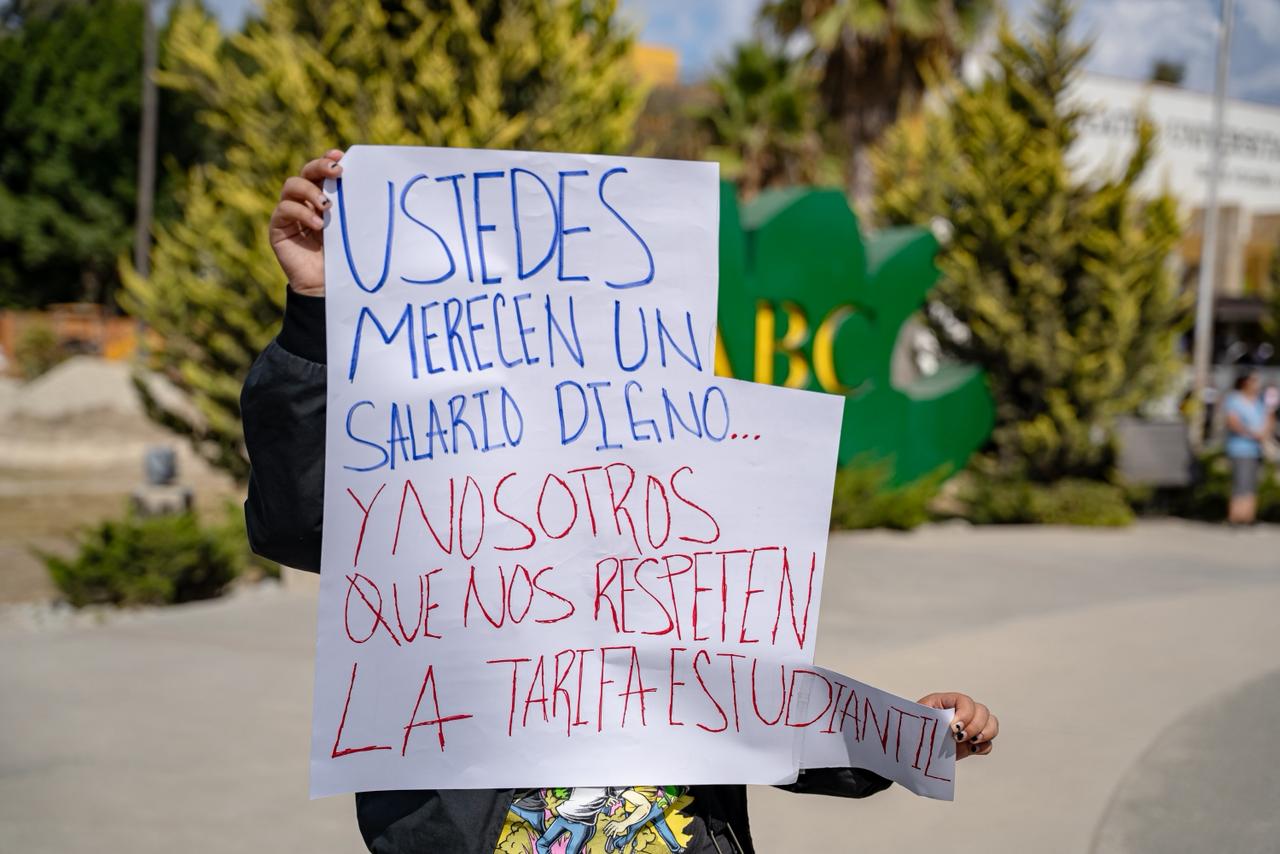 USTEDES
MERECEN UN
SALARIO DIGNO...
Y NOSOTROS
QUE NOS RESPETEN
LA TARIFA ESTUDIANTIL
ABC